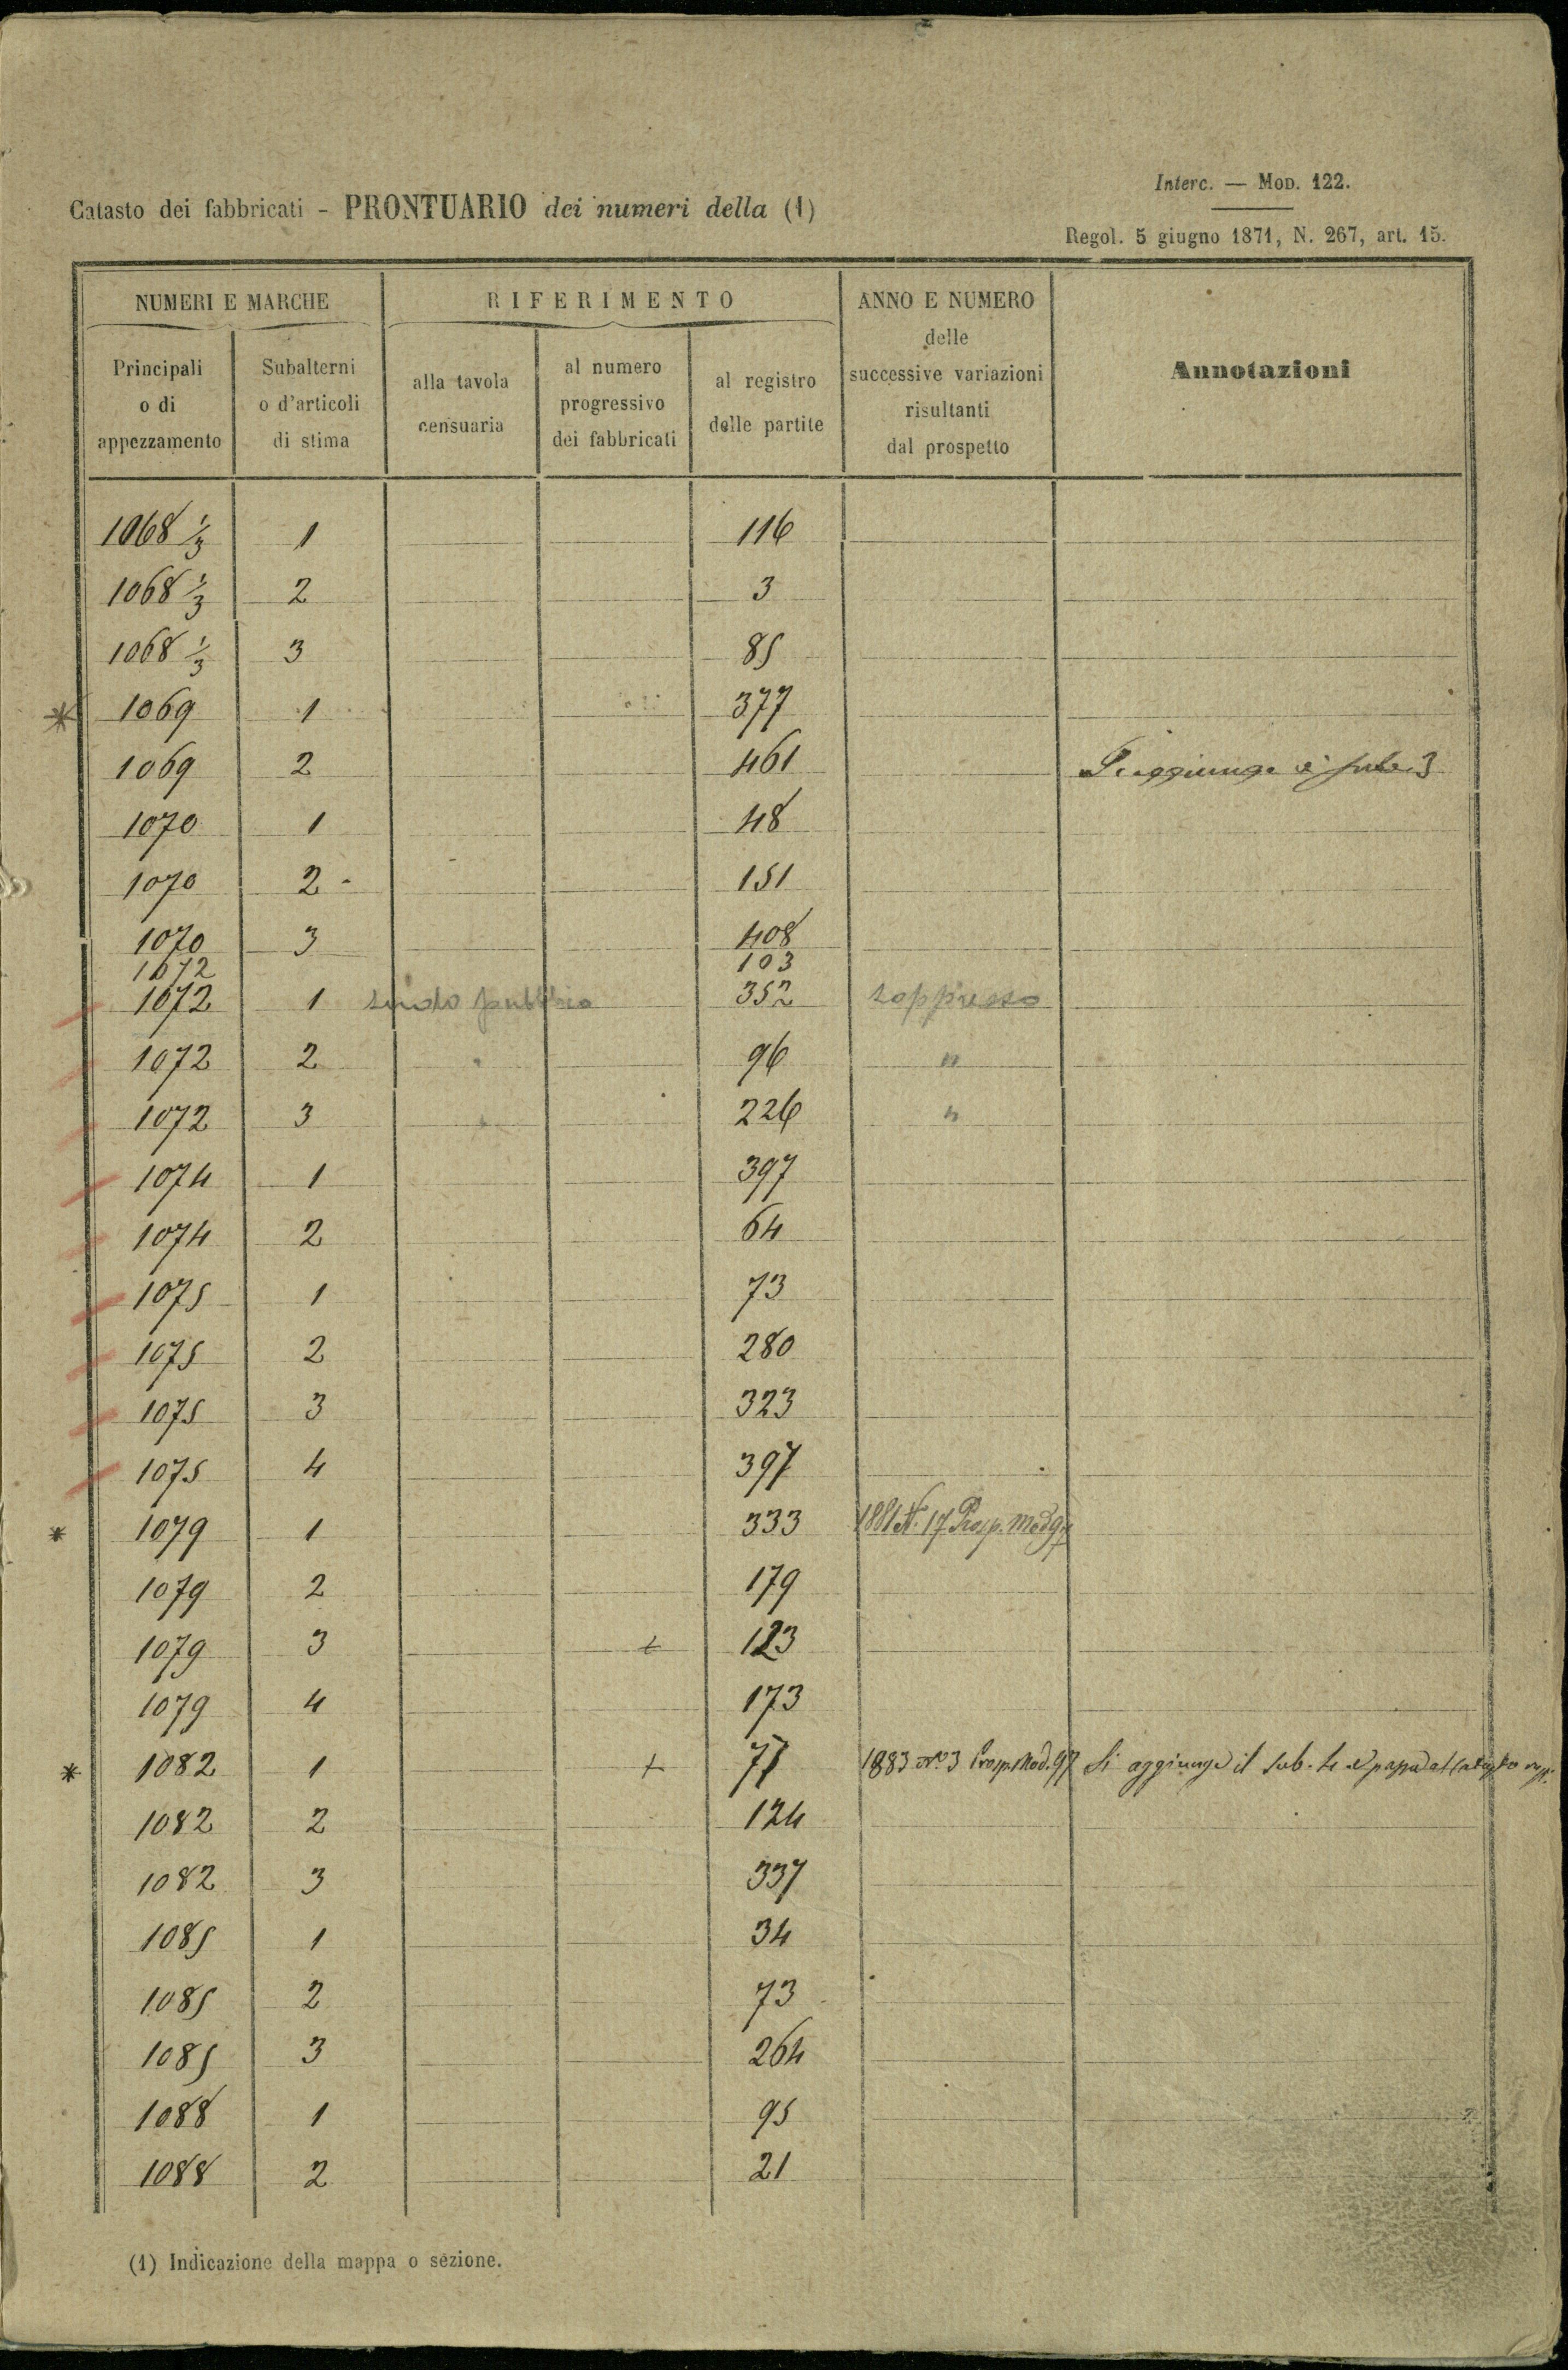 Interc. — Mod. 122.
Catasto dei fabbricati - PRONTUARIO dei numeri della (1)
Regol. 5 giugno 1871, N. 267, art. 15.
NUMERI E MARCHE
RIFERIMENTO
ANNO E NUMERO
delle
successive variazioni
risultanti
dal prospetto
Annotazioni
Principali
o di
appezzamento
Subalterni
o d'articoli
di stima
alla tavola
censuaria
al numero
progressivo
dei fabbricati
al registro
delle partite
1068 1/3 1 116
1068 1/3 2 3
1068 1/3 3 85
* 1069 1 377
1069 2 461 Si aggiunge il sub. 3
1070 1 48
1070 2 - 151
1070 3 408
1072 103
1072 1 suolo pubblico 352 soppresso
1072 2 " 96 "
1072 3 " 226 "
1074 1 397
1074 2 64
1075 1 73
1075 2 280
1075 3 323
1075 4 397
* 1079 1 333 1881 N. 17 Prosp. Mod 97
1079 2 179
1079 3 + 123
1079 4 173
* 1082 1 + 77 1883 No 3 Prosp. Mod. 97 Si aggiunge il sub. 4 e passa al
1082 2 124
1082 3 337
1085 1 34
1085 2 73
1085 3 264
1088 1 95
1088 2 21
(1) Indicazione della mappa o sezione.